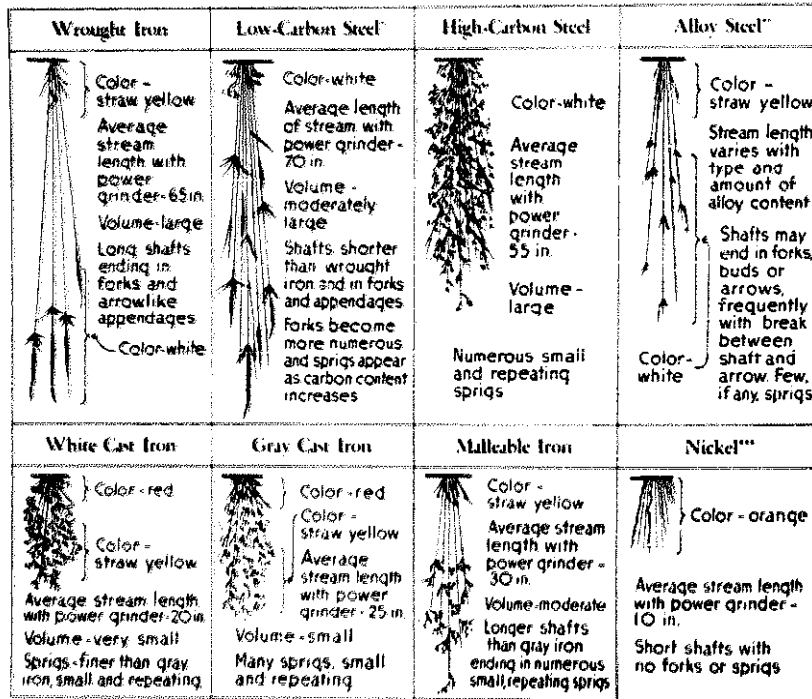 Wrought Iron
Color-
straw yellow
Average
stream
length with
power
grinder-65 in.
Volume-large
Long shafts
ending in
forks and
arrowlike
appendages
Color-white
Low-Carbon Steel*
Color-white
Average length
of stream with
power grinder-
70 in.
Volume-
moderately
large
Shafts shorter
than wrought
iron and in forks
and appendages
Forks become
more numerous
and sprigs appear
as carbon content
increases
High-Carbon Steel
Color-white
Average
stream
length
with
power
grinder-
55 in.
Volume-
large
Numerous small
and repeating
sprigs
Alloy Steel**
Color-
straw yellow
Stream length
varies with
type and
amount of
alloy content
Shafts may
end in forks,
buds or
arrows,
frequently
with break
between
shaft and
arrow. Few,
if any, sprigs
Color-
white
White Cast Iron
Color-red
Color-
straw yellow
Average stream length
with power grinder-20 in.
Volume-very small
Sprigs-finer than gray
iron, small and repeating
Gray Cast Iron
Color-red
Color-
straw yellow
Average
stream length
with power
grinder-25 in.
Volume-small
Many sprigs, small
and repeating
Malleable Iron
Color-
straw yellow
Average stream
length with
power grinder-
30 in.
Volume-moderate
Longer shafts
than gray iron
ending in numerous
small, repeating sprigs
Nickel***
Color-orange
Average stream length
with power grinder-
10 in.
Short shafts with
no forks or sprigs